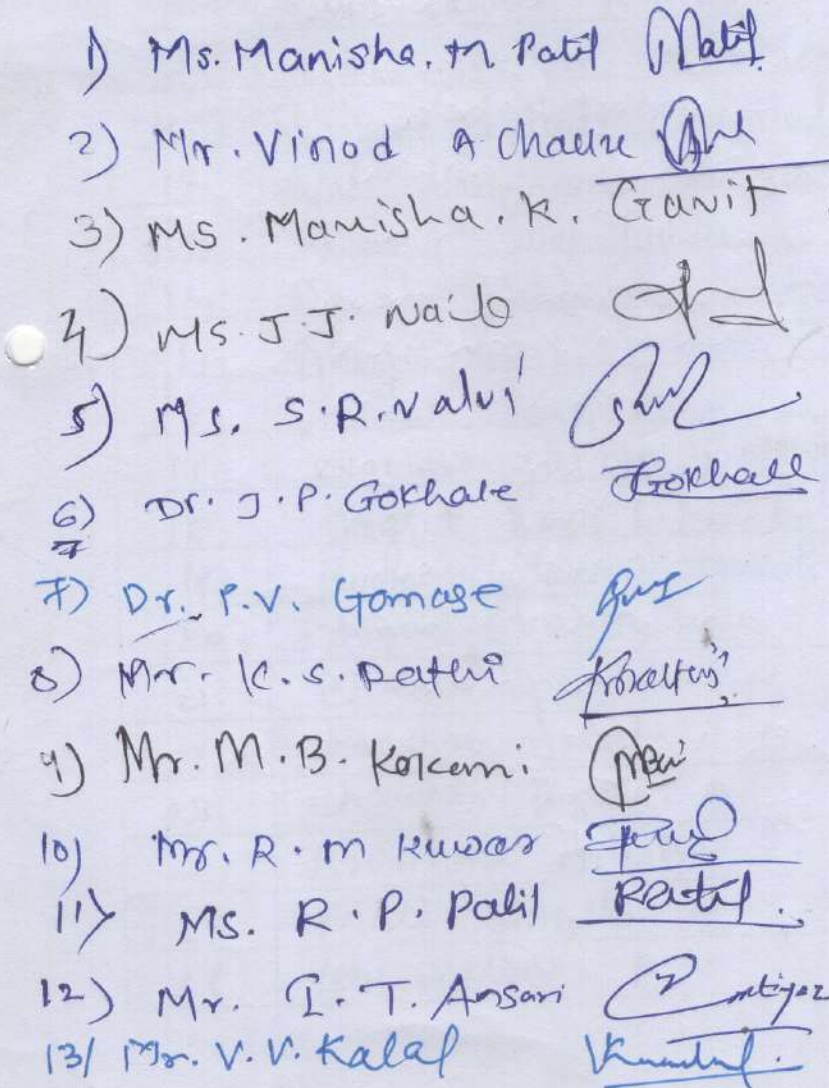 1) Ms. Manisha. M Patil Patil
2) Mr. Vinod A Chaure
3) Ms. Manisha. K. Gavit
4) Ms. J. J. Naik
5) Ms. S. R. Valvi
6) Dr. J. P. Gokhale JGokhale
7) Dr. P. V. Gomase
8) Mr. K. S. Rathi
9) Mr. M. B. Kokani
10) Mr. R. M Kuwar
11) Ms. R. P. Patil RPatil.
12) Mr. I. T. Ansari Imtiyaz
13) Mr. V. V. Kalal